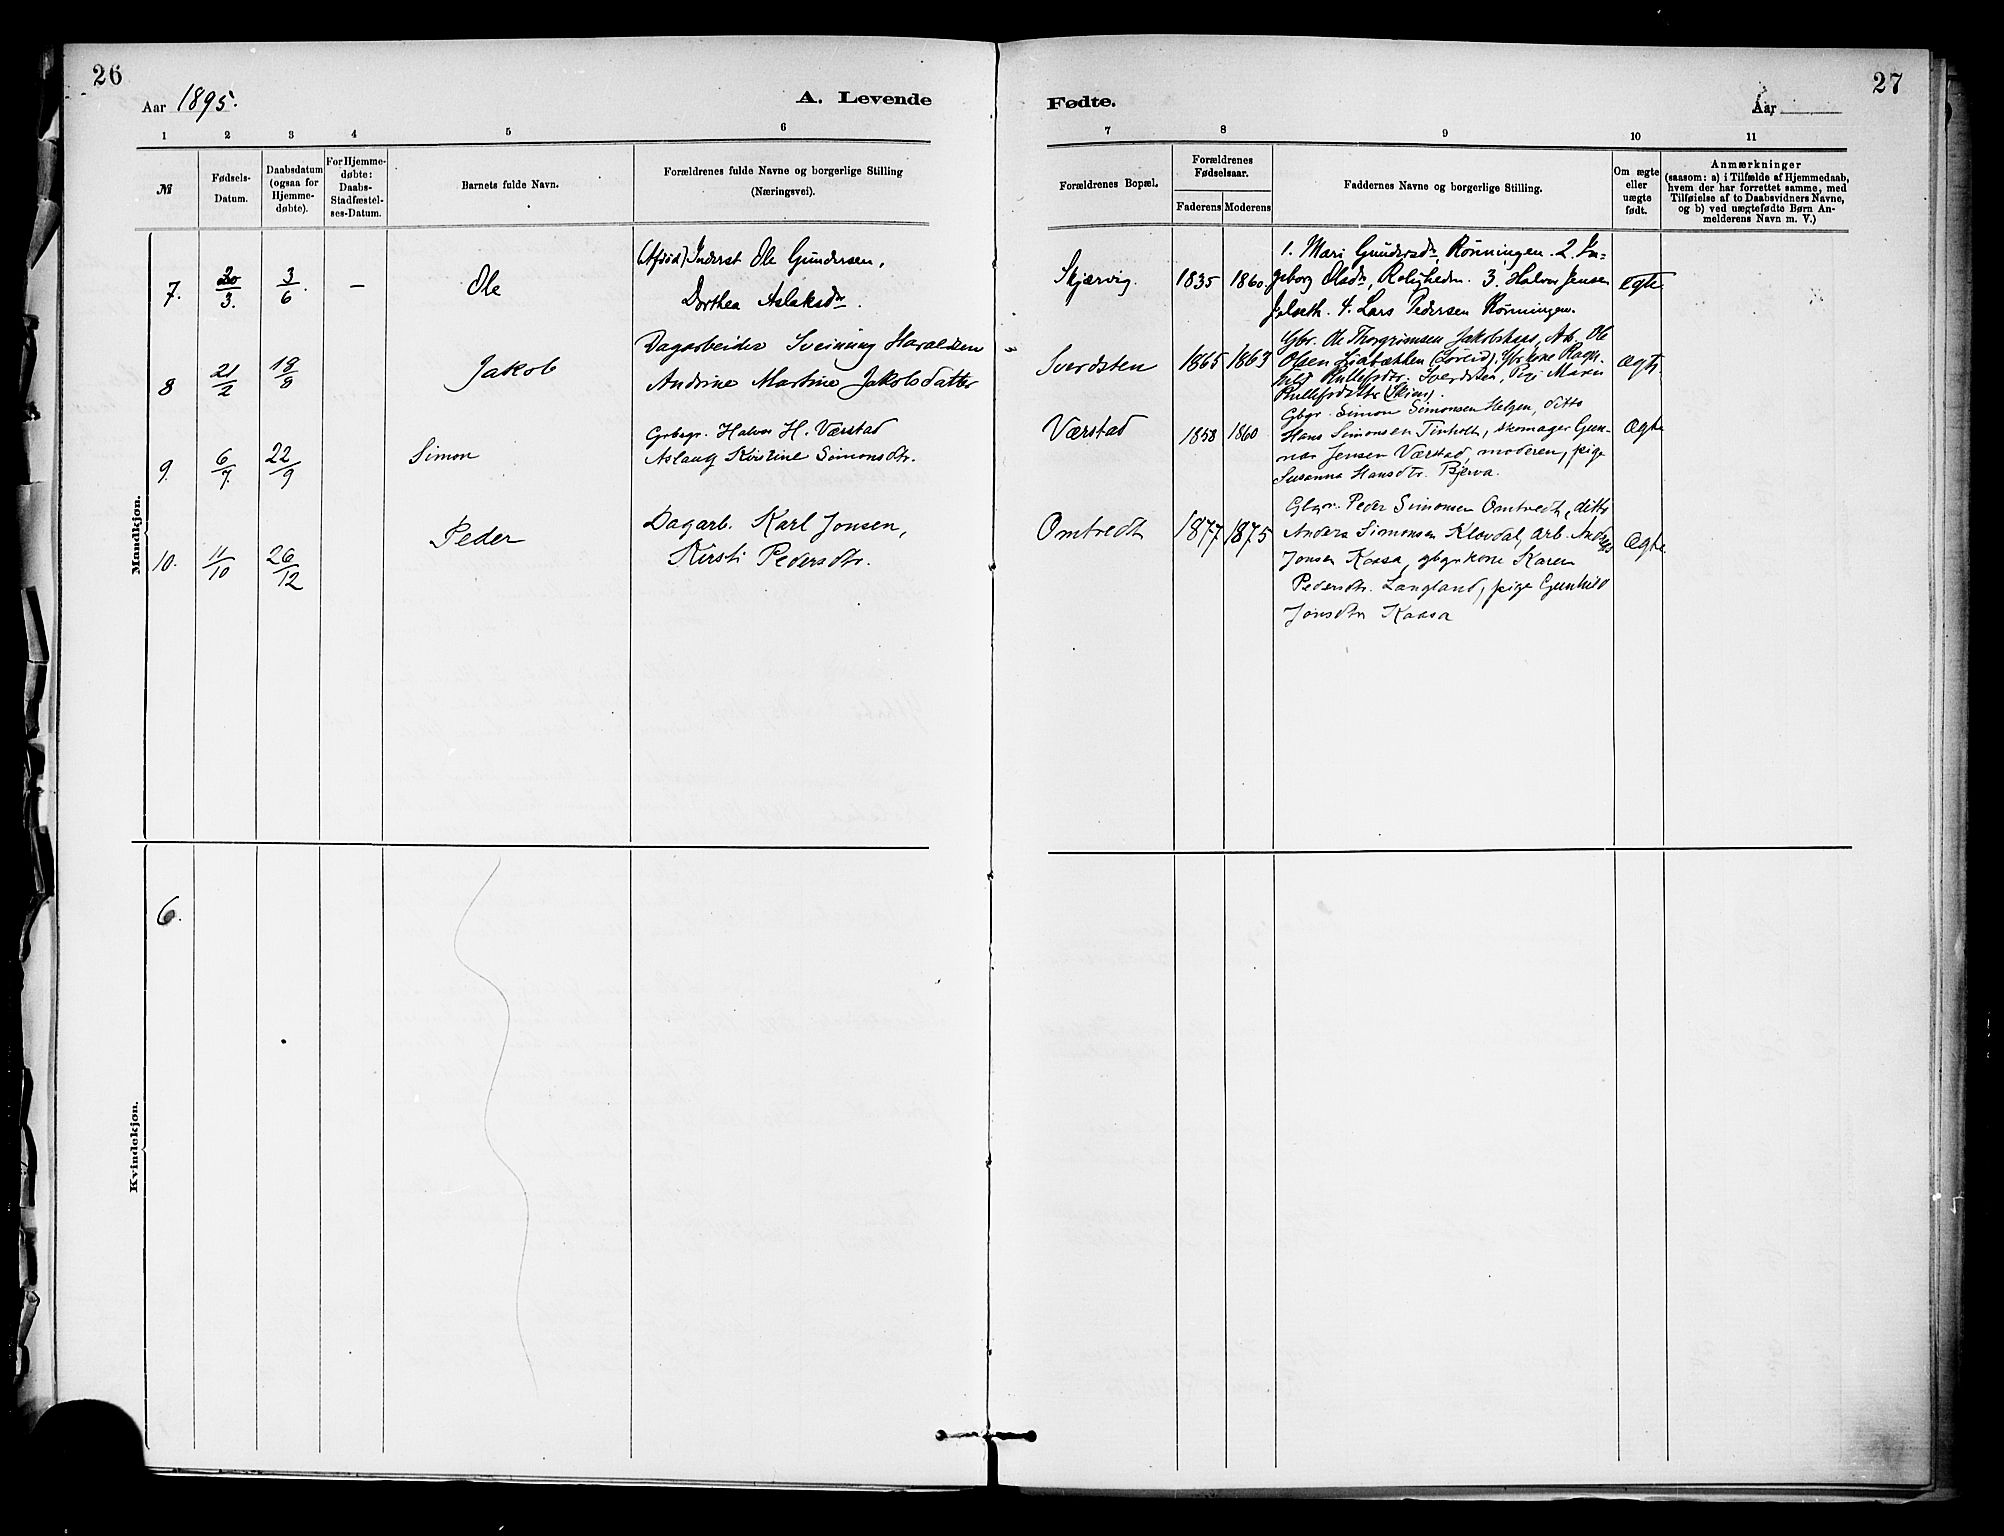 26
Aar 1895.
A. Levende
1 2 3 4 5 6
№
Fødsels-
Datum.
Daabsdatum
(ogsaa for
Hjemme-
døbte).
For Hjemme-
døbte:
Daabs-
Stadfæstel-
ses-Datum.
Barnets fulde Navn.
Forældrenes fulde Navne og borgerlige Stilling
(Næringsvei).
Mandkjøn.
7. 20/3. 3/6. — Ole
(Afdød) Inderst Ole Gundersen,
Dorthea Aslaksdr.
8 21/2 18/8 Jakob
Dagarbeider Sveinung Haraldsen
Andrine Martine Jakobsdatter
9. 6/7 22/9 Simon
Grbsgr. Halvor H. Værstad
Aslaug Kirstine Simonsdtr.
10. 11/10 26/12 Peder
Dagarb. Karl Jonsen,
Kirsti Pedersdtr.
Kvindekjøn.
6.
27
Fødte.
Aar
7 8 9 10 11
Forældrenes Bopæl.
Forældrenes
Fødselsaar.
Faderens Moderens
Faddernes Navne og borgerlige Stilling.
Om ægte
eller
uægte
født.
Anmærkninger
(saasom: a) i Tilfælde af Hjemmedaab,
hvem der har forrettet samme, med
Tilføielse af to Daabsvidners Navne,
og b) ved uægtefødte Børn An-
melderens Navn m. V.)
Skjærvig. 1835 1860 Egte
1. Mari Gundersdr, Rønningen. 2. In-
geborg Olsdr, Roligheden. 3. Halvor Jensen
Jelseth. 4. Lars Pedersen Rønningen.
Sverdsten 1865 1863 Ægte
Gbr. Ole Thorgrimsen Jakobshus, Arb. Ole
Olsen Liabækken, Gbr.kone Ragn-
hild Rullefsdtr. Sverdsten, Pige Maren
Rullefsdatter (Skien).
Værstad 1858 1860 Ægte
Gbgr. Simon Simonsen Helgen, ditto
Hans Simonsen Tinholt, skomager Gun-
nar Jensen Værstad, moderen, pige
Susanna Hansdtr. Bjerva.
Omtvedt 1877 1875 Ægte
Gbgr. Peder Simonsen Omtvedt, ditto
Anders Simonsen Klovdal, arb. Anders
Jonsen Kaasa, gbgr.kone Karen
Pedersdtr. Langland, pige Gunhild
Jonsdtr Kaasa